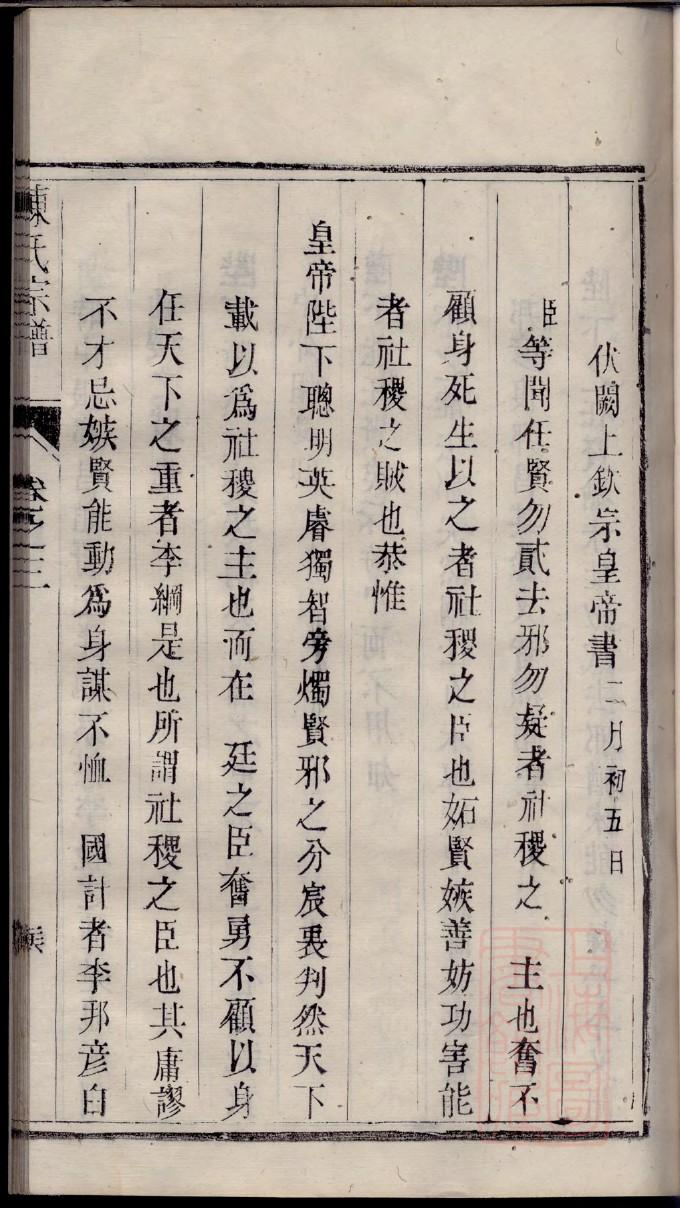 伏闕上欽宗皇帝書二月初五日
臣等聞任賢勿貳去邪勿疑者社稷之 主也奮不
顧身死生以之者社稷之臣也妬賢嫉善妨功害能
者社稷之賊也恭惟
皇帝陛下聰明英睿獨智旁燭賢邪之分宸衷判然天下
載以爲社稷之主也而在 廷之臣奮勇不顧以身
任天下之重者李綱是也所謂社稷之臣也其庸謬
不才忌嫉賢能動爲身謀不恤 國計者李邦彦白
陳氏宗譜 卷之三